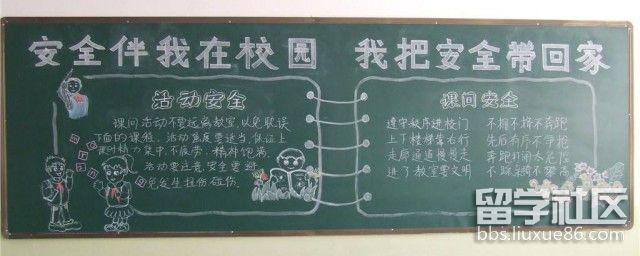 安全伴我在校园 我把安全带回家
活动安全
课间活动不要远离教室,以免耽误
下面的课程。活动强度要适当,保证上
课时精力集中,不疲劳,精神饱满,
活动要注意安全要避
免发生扭伤 碰伤。
课间安全
遵守秩序进校门 不拥不挤不奔跑
上下楼梯靠右行 先后有序不争抢
走廊通道慢慢走 奔跑打闹太危险
进了教室要文明 不踩桌椅不攀高
留学社区
bbs.liuxue86.com